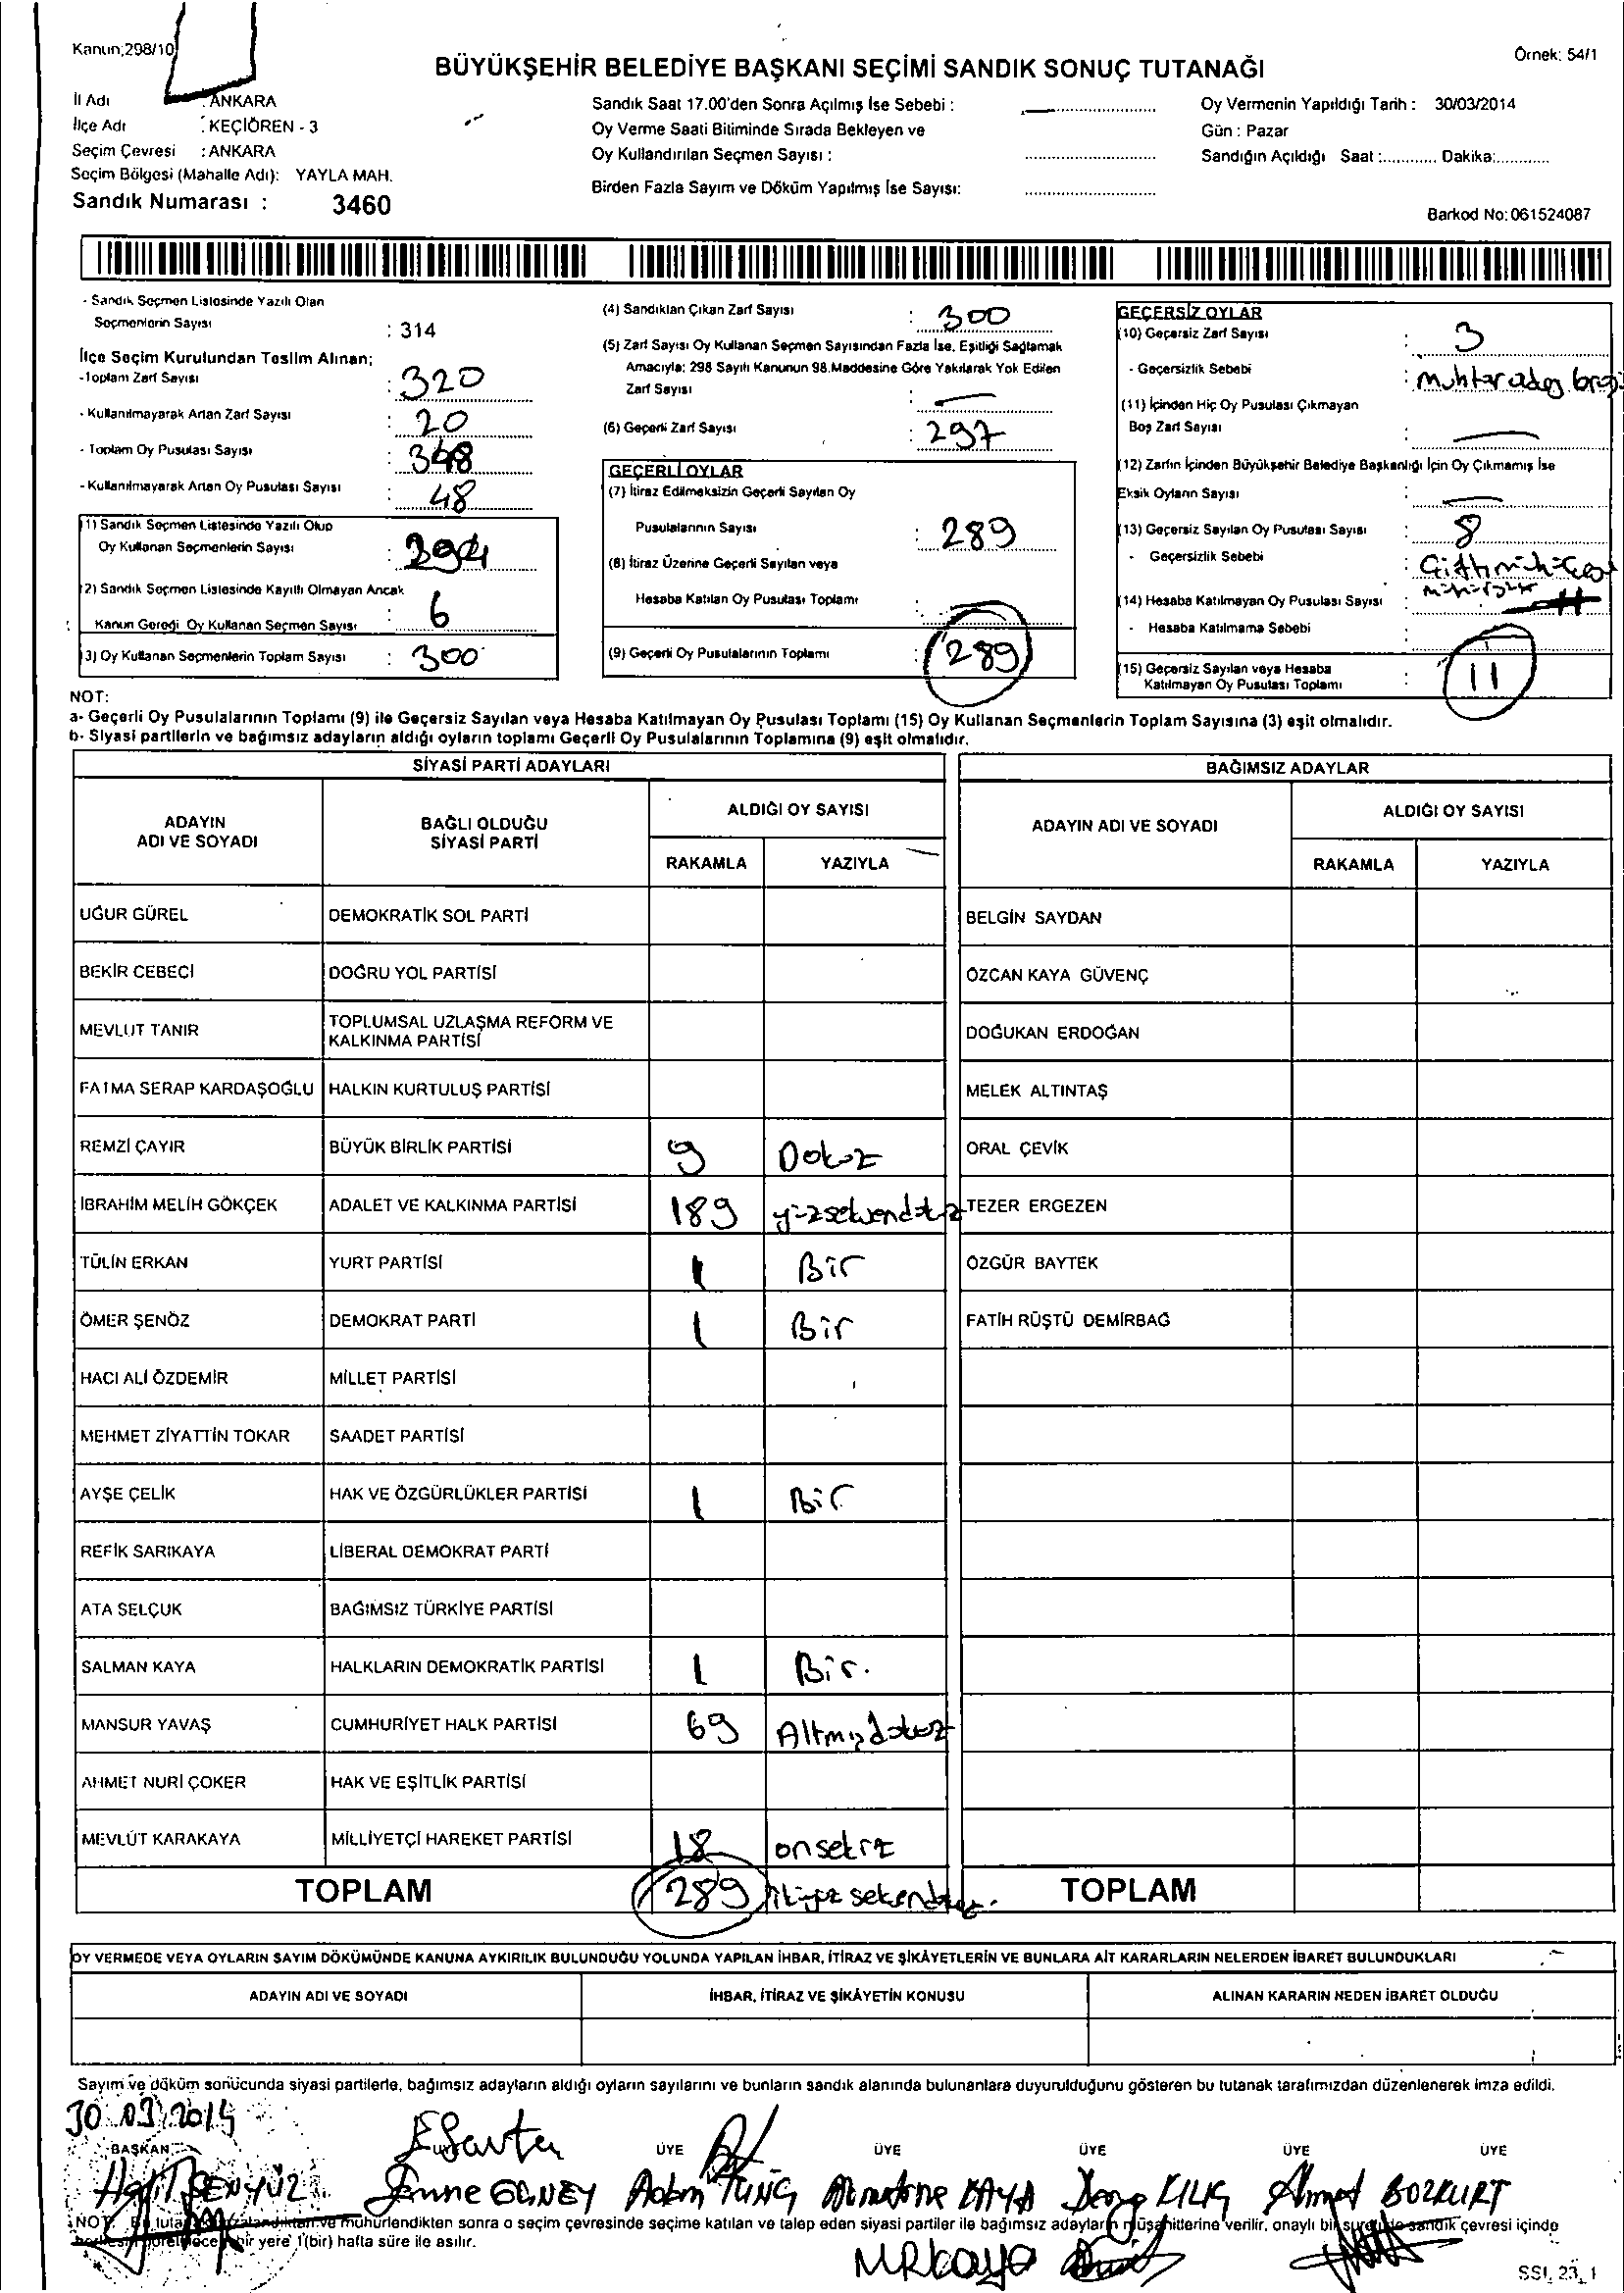 Kanun;298/10
Örnek: 54/1
BÜYÜKŞEHİR BELEDİYE BAŞKANI SEÇİMİ SANDIK SONUÇ TUTANAĞI
İl Adı : ANKARA
İlçe Adı : KEÇİÖREN - 3
Seçim Çevresi : ANKARA
Seçim Bölgesi (Mahalle Adı): YAYLA MAH.
Sandık Numarası : 3460
Sandık Saat 17.00'den Sonra Açılmış İse Sebebi :
Oy Verme Saati Bitiminde Sırada Bekleyen ve
Oy Kullandırılan Seçmen Sayısı :
Birden Fazla Sayım ve Döküm Yapılmış İse Sayısı:
Oy Vermenin Yapıldığı Tarih : 30/03/2014
Gün : Pazar
Sandığın Açıldığı Saat :............ Dakika:............
Barkod No: 061524087
- Sandık Seçmen Listesinde Yazılı Olan
Seçmenlerin Sayısı : 314
İlçe Seçim Kurulundan Teslim Alınan;
-Toplam Zarf Sayısı : 320
- Kullanılmayarak Artan Zarf Sayısı : 20
- Toplam Oy Pusulası Sayısı : 348
- Kullanılmayarak Artan Oy Pusulası Sayısı : 48
(1) Sandık Seçmen Listesinde Yazılı Olup
Oy Kullanan Seçmenlerin Sayısı : 294
(2) Sandık Seçmen Listesinde Kayıtlı Olmayan Ancak
Kanun Gereği Oy Kullanan Seçmen Sayısı : 6
(3) Oy Kullanan Seçmenlerin Toplam Sayısı : 300
(4) Sandıktan Çıkan Zarf Sayısı : 300
(5) Zarf Sayısı Oy Kullanan Seçmen Sayısından Fazla İse, Eşitliği Sağlamak
Amacıyla; 298 Sayılı Kanunun 98.Maddesine Göre Yakılarak Yok Edilen
Zarf Sayısı : —
(6) Geçerli Zarf Sayısı : 297
GEÇERLİ OYLAR
(7) İtiraz Edilmeksizin Geçerli Sayılan Oy
Pusulalarının Sayısı : 289
(8) İtiraz Üzerine Geçerli Sayılan veya
Hesaba Katılan Oy Pusulası Toplamı :
(9) Geçerli Oy Pusulalarının Toplamı : 289
GEÇERSİZ OYLAR
(10) Geçersiz Zarf Sayısı : 3
- Geçersizlik Sebebi : muhtar
(11) İçinden Hiç Oy Pusulası Çıkmayan
Boş Zarf Sayısı : —
(12) Zarfın İçinden Büyükşehir Belediye Başkanlığı İçin Oy Çıkmamış İse
Eksik Oyların Sayısı : —
(13) Geçersiz Sayılan Oy Pusulası Sayısı : 8
- Geçersizlik Sebebi :
(14) Hesaba Katılmayan Oy Pusulası Sayısı :
- Hesaba Katılmama Sebebi
(15) Geçersiz Sayılan veya Hesaba
Katılmayan Oy Pusulası Toplamı : 11
NOT:
a- Geçerli Oy Pusulalarının Toplamı (9) ile Geçersiz Sayılan veya Hesaba Katılmayan Oy Pusulası Toplamı (15) Oy Kullanan Seçmenlerin Toplam Sayısına (3) eşit olmalıdır.
b- Siyasi partilerin ve bağımsız adayların aldığı oyların toplamı Geçerli Oy Pusulalarının Toplamına (9) eşit olmalıdır.
SİYASİ PARTİ ADAYLARI
ADAYIN ADI VE SOYADI
BAĞLI OLDUĞU SİYASİ PARTİ
ALDIĞI OY SAYISI
RAKAMLA YAZIYLA
UĞUR GÜREL DEMOKRATİK SOL PARTİ
BEKİR CEBECİ DOĞRU YOL PARTİSİ
MEVLUT TANIR TOPLUMSAL UZLAŞMA REFORM VE
KALKINMA PARTİSİ
FATMA SERAP KARDAŞOĞLU HALKIN KURTULUŞ PARTİSİ
REMZİ ÇAYIR BÜYÜK BİRLİK PARTİSİ 9 Dokuz
İBRAHİM MELİH GÖKÇEK ADALET VE KALKINMA PARTİSİ 189 yüzseksendokuz
TÜLİN ERKAN YURT PARTİSİ 1 Bir
ÖMER ŞENÖZ DEMOKRAT PARTİ 1 Bir
HACI ALİ ÖZDEMİR MİLLET PARTİSİ
MEHMET ZİYATTİN TOKAR SAADET PARTİSİ
AYŞE ÇELİK HAK VE ÖZGÜRLÜKLER PARTİSİ 1 Bir
REFİK SARIKAYA LİBERAL DEMOKRAT PARTİ
ATA SELÇUK BAĞIMSIZ TÜRKİYE PARTİSİ
SALMAN KAYA HALKLARIN DEMOKRATİK PARTİSİ 1 Bir.
MANSUR YAVAŞ CUMHURİYET HALK PARTİSİ 69 Altmışdokuz
AHMET NURİ ÇOKER HAK VE EŞİTLİK PARTİSİ
MEVLÜT KARAKAYA MİLLİYETÇİ HAREKET PARTİSİ 18 onsekiz
TOPLAM 289 ikiyüz seksendokuz.
BAĞIMSIZ ADAYLAR
ADAYIN ADI VE SOYADI
ALDIĞI OY SAYISI
RAKAMLA YAZIYLA
BELGİN SAYDAN
ÖZCAN KAYA GÜVENÇ
DOĞUKAN ERDOĞAN
MELEK ALTINTAŞ
ORAL ÇEVİK
TEZER ERGEZEN
ÖZGÜR BAYTEK
FATİH RÜŞTÜ DEMİRBAĞ
TOPLAM
OY VERMEDE VEYA OYLARIN SAYIM DÖKÜMÜNDE KANUNA AYKIRILIK BULUNDUĞU YOLUNDA YAPILAN İHBAR, İTİRAZ VE ŞİKÂYETLERİN VE BUNLARA AİT KARARLARIN NELERDEN İBARET BULUNDUKLARI
ADAYIN ADI VE SOYADI İHBAR, İTİRAZ VE ŞİKÂYETİN KONUSU ALINAN KARARIN NEDEN İBARET OLDUĞU
Sayım ve döküm sonucunda siyasi partilerle, bağımsız adayların aldığı oyların sayılarını ve bunların sandık alanında bulunanlara duyurulduğunu gösteren bu tutanak tarafımızdan düzenlenerek imza edildi.
30.03.2014
BAŞKAN ÜYE ÜYE ÜYE ÜYE ÜYE
Halit ŞENYÜZ Emine GÜNEY Adem TUNÇ KAYA KILIÇ Ahmet BOZKURT
NOT: Bu tutanak ve mühürlendikten sonra o seçim çevresinde seçime katılan ve talep eden siyasi partiler ile bağımsız adayların müşahitlerine verilir, onaylı bir sandık çevresi içinde
bir yere 1(bir) hafta süre ile asılır.
SSI_23_1